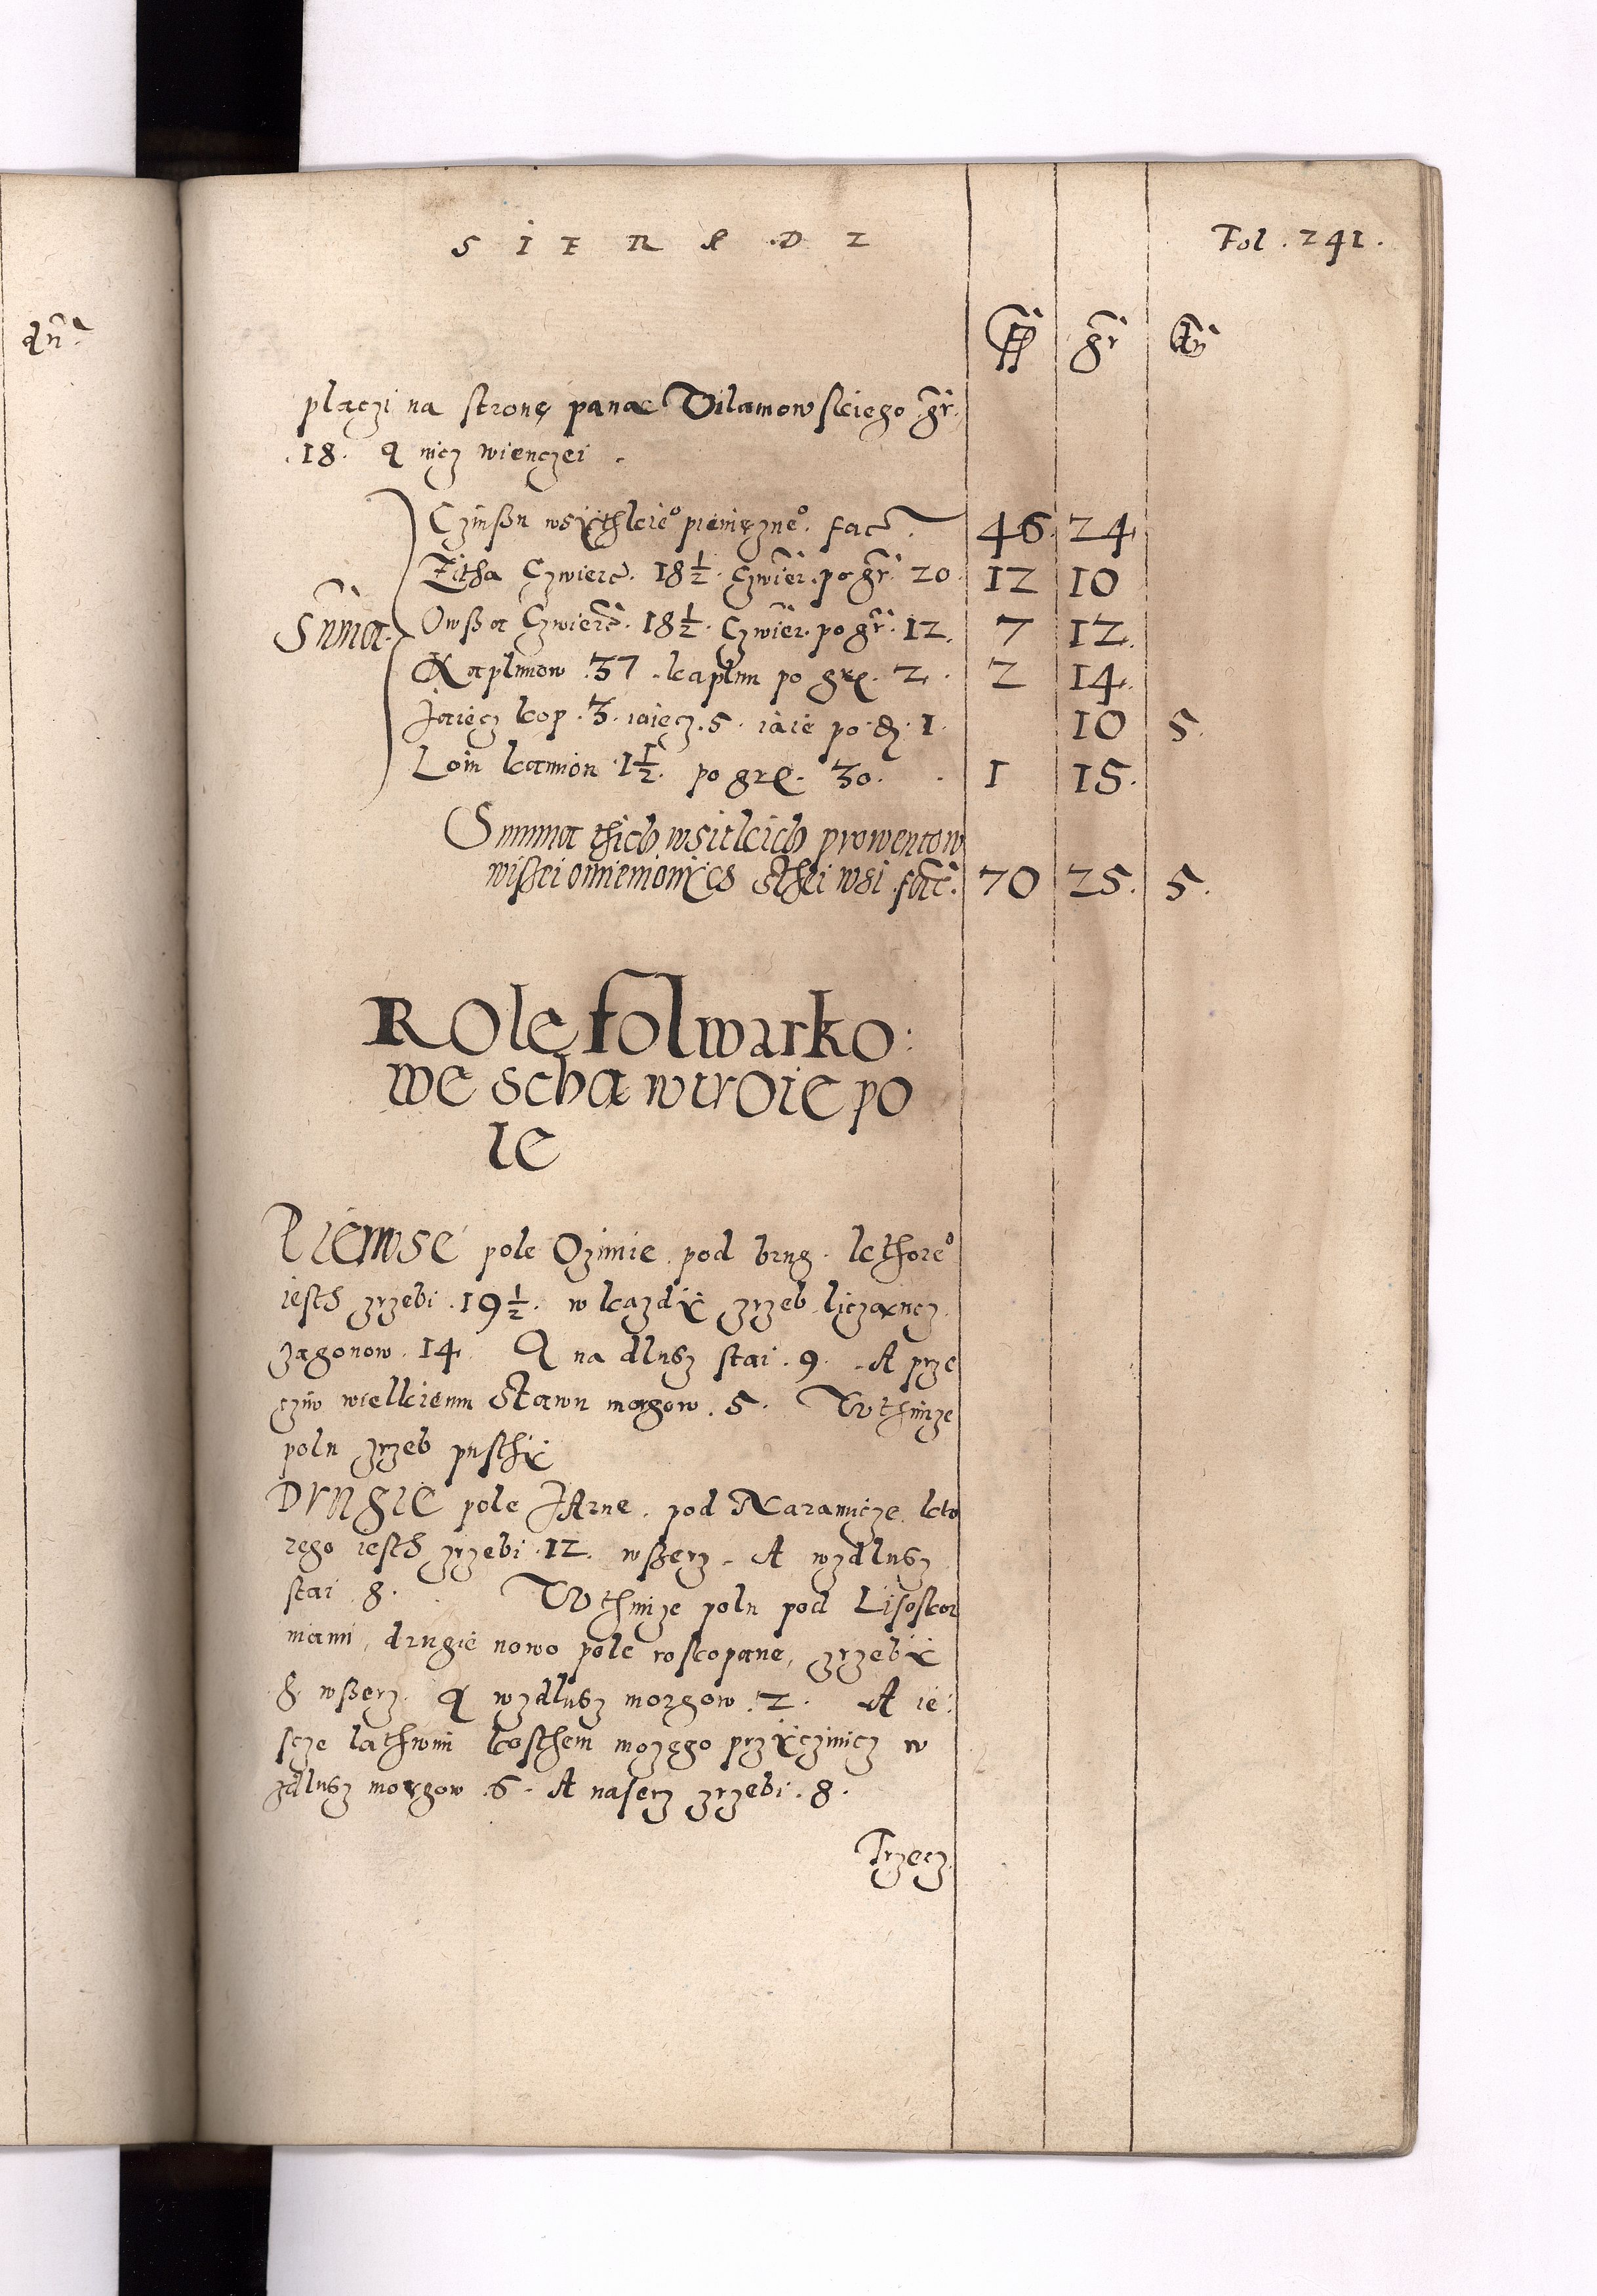 S I E R A D Z
Fol. 241.
dn̄
fl gr dn̄
placzi na stronę pana Wilamowskiego gr.
.18. A nicz wienczei.
Czinßu wsÿthkie° pieniężne°. fac. 46. 24
Zitha Czwierc. 18½. Czwier. po gr. 20. 12 10
Sūma. Owßa Czwierc. 18½. Czwier. po gr. 12. 7 12.
Kaplunow .37. kaplun po gr. 2. 2 14.
Jaiecz kop .3. iaięcz .5. iaie po d. 1. 10 5.
Loiu kamion 1½. po gr. 30. 1 15.
Summa thich wsitkich prowentow
wißei omienionÿch Sthei wsi fac. 70 25. 5.
ROle folwarko:
we scha wtroie po
le
Pierwse pole Ozimie pod brug. kthore°
iesth zrzebi .19½. w kazdÿ zrzeb liczancz
zagonow. 14. A na dlusz stai .9. A prze
cziw wielkiemu Stawu morgow .5. W thimze
polu zrzeb pusthÿ
Drugie pole JArne. pod Naramicze kto
rego iesth zrzebi .12. wßerz. A wzdlusz
stai 8. W thimze polu pod Lisoskor
niami, drugie nowo pole roskopane, zrzebÿ
8 wßerz. A wzdlusz morgow .2. A ie:
scze lathwim kosthem mozego przÿczinicz w
zdlusz morgow .6. A naserz zrzebi .8.
Trzecz